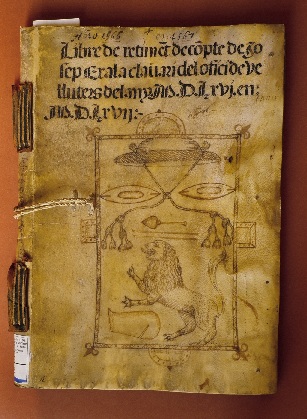 Año 1566 en 1567
Libre de retimēt de cōpte de Jo
sep Exala clauari del offici de ve
lluters del any M.D.Lxvj. en
M.D.Lxvij:~